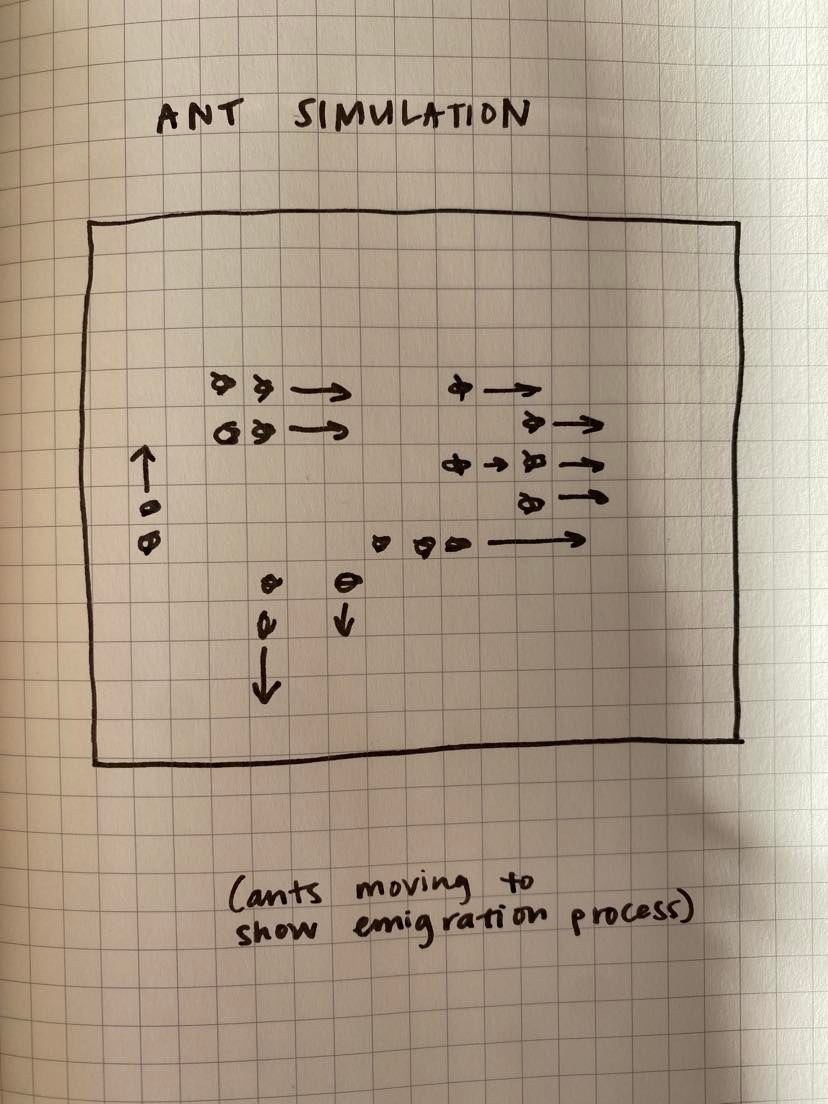 ANT SIMULATION
(ants moving to
show emigration process)